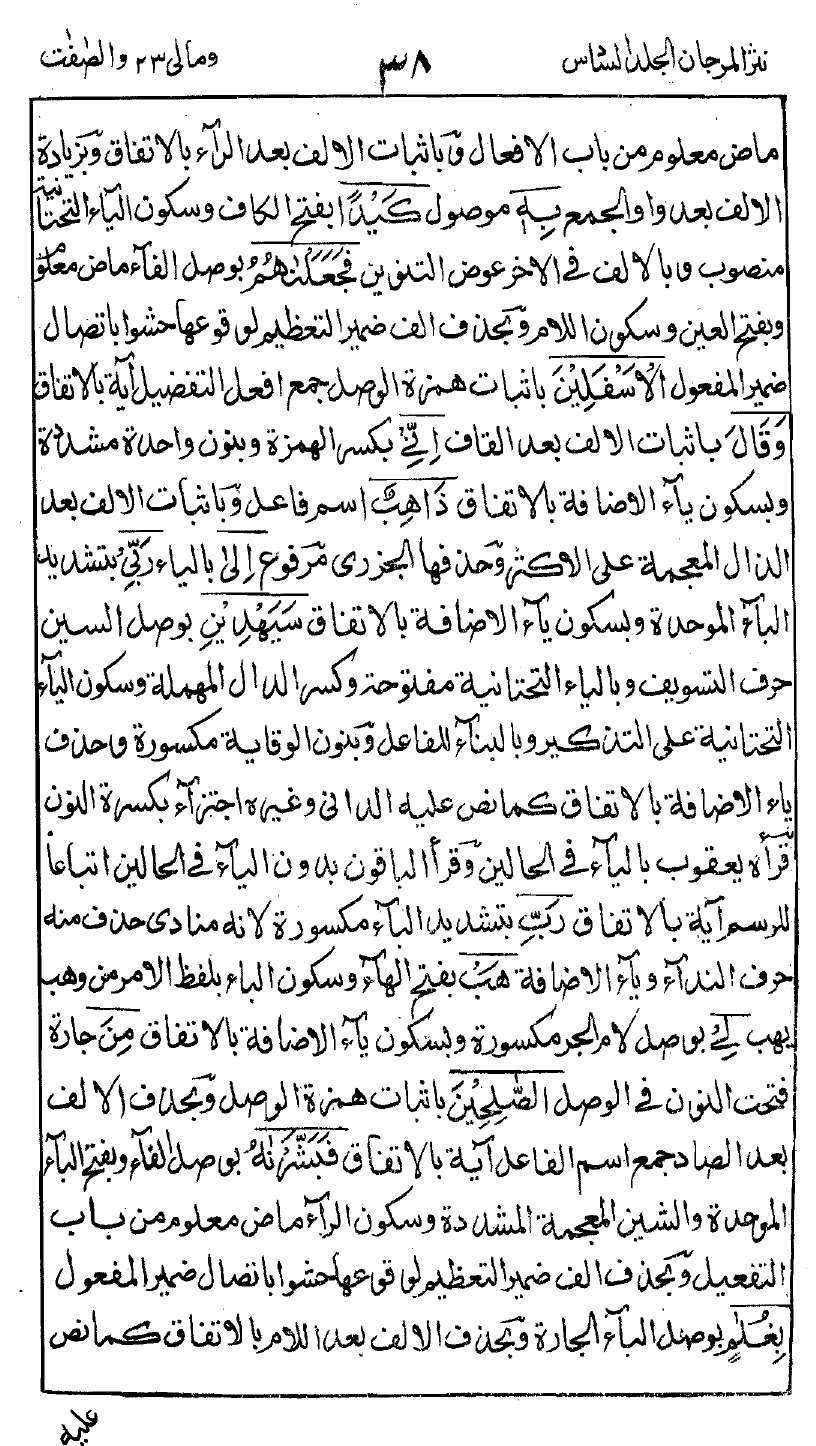 نثر المرجان الجلد السادس ٣٨ ومالى ٢٣ والصٰفٰت
ماض معلوم من باب الافعال وباثبات الالف بعد الرآء بالاتفاق وبزيادة
الالف بعد واو الجمع بِهٖ موصول كَيْدًا بفتح الكاف وسكون الياء التحتانية
منصوب وبالالف فى الاخر عوض التنوين فَجَعَلْنٰهُمُ بوصل الفآء ماض معلوم
وبفتح العين وسكون اللام وبحذف الف ضمير التعظيم لوقوعها حشوا باتصال
ضمير المفعول الْاَسْفَلِيْنَ باثبات همزة الوصل جمع افعل التفضيل آية بالاتفاق
وَقَالَ باثبات الالف بعد القاف اِنِّيْ بكسر الهمزة وبنون واحدة مشددة
وبسكون يآء الاضافة بالاتفاق ذَاهِبٌ اسم فاعل وباثبات الالف بعد
الذال المعجمة على الاكثر وحذفها الجزرى مرفوع اِلٰى بالياء رَبِّيْ بتشديد
البآء الموحدة وبسكون يآء الاضافة بالاتفاق سَيَهْدِيْنِ بوصل السين
حرف التسويف وبالياء التحتانية مفتوحة وكسر الدال المهملة وسكون اليآء
التحتانية على التذكير وبالبنآء للفاعل وبنون الوقاية مكسورة وحذف
ياء الاضافة بالاتفاق كما نص عليه الدانى وغيره اجتزآء بكسرة النون
قرأه يعقوب باليآء فى الحالين وقرأ الباقون بدون اليآء فى الحالين اتباعاً
للرسم آية بالاتفاق رَبِّ بتشديد البآء مكسورة لانه منادى حذف منه
حرف الندآء ويآء الاضافة هَبْ بفتح الهآء وسكون الباء بلفظ الامر من وهب
يهب لِيْ بوصل لام الجر مكسورة وبسكون يآء الاضافة بالاتفاق مِنَ جارة
فتحت النون فى الوصل الصّٰلِحِيْنَ باثبات همزة الوصل وبحذف الالف
بعد الصاد جمع اسم الفاعل آية بالاتفاق فَبَشَّرْنٰهُ بوصل الفآء وبفتح البآء
الموحدة والشين المعجمة المشددة وسكون الرآء ماض معلوم من باب
التفعيل وبحذف الف ضمير التعظيم لوقوعها حشوا باتصال ضمير المفعول
بِغُلٰمٍ بوصل البآء الجارة وبحذف الالف بعد اللام بالاتفاق كما نص
عليه